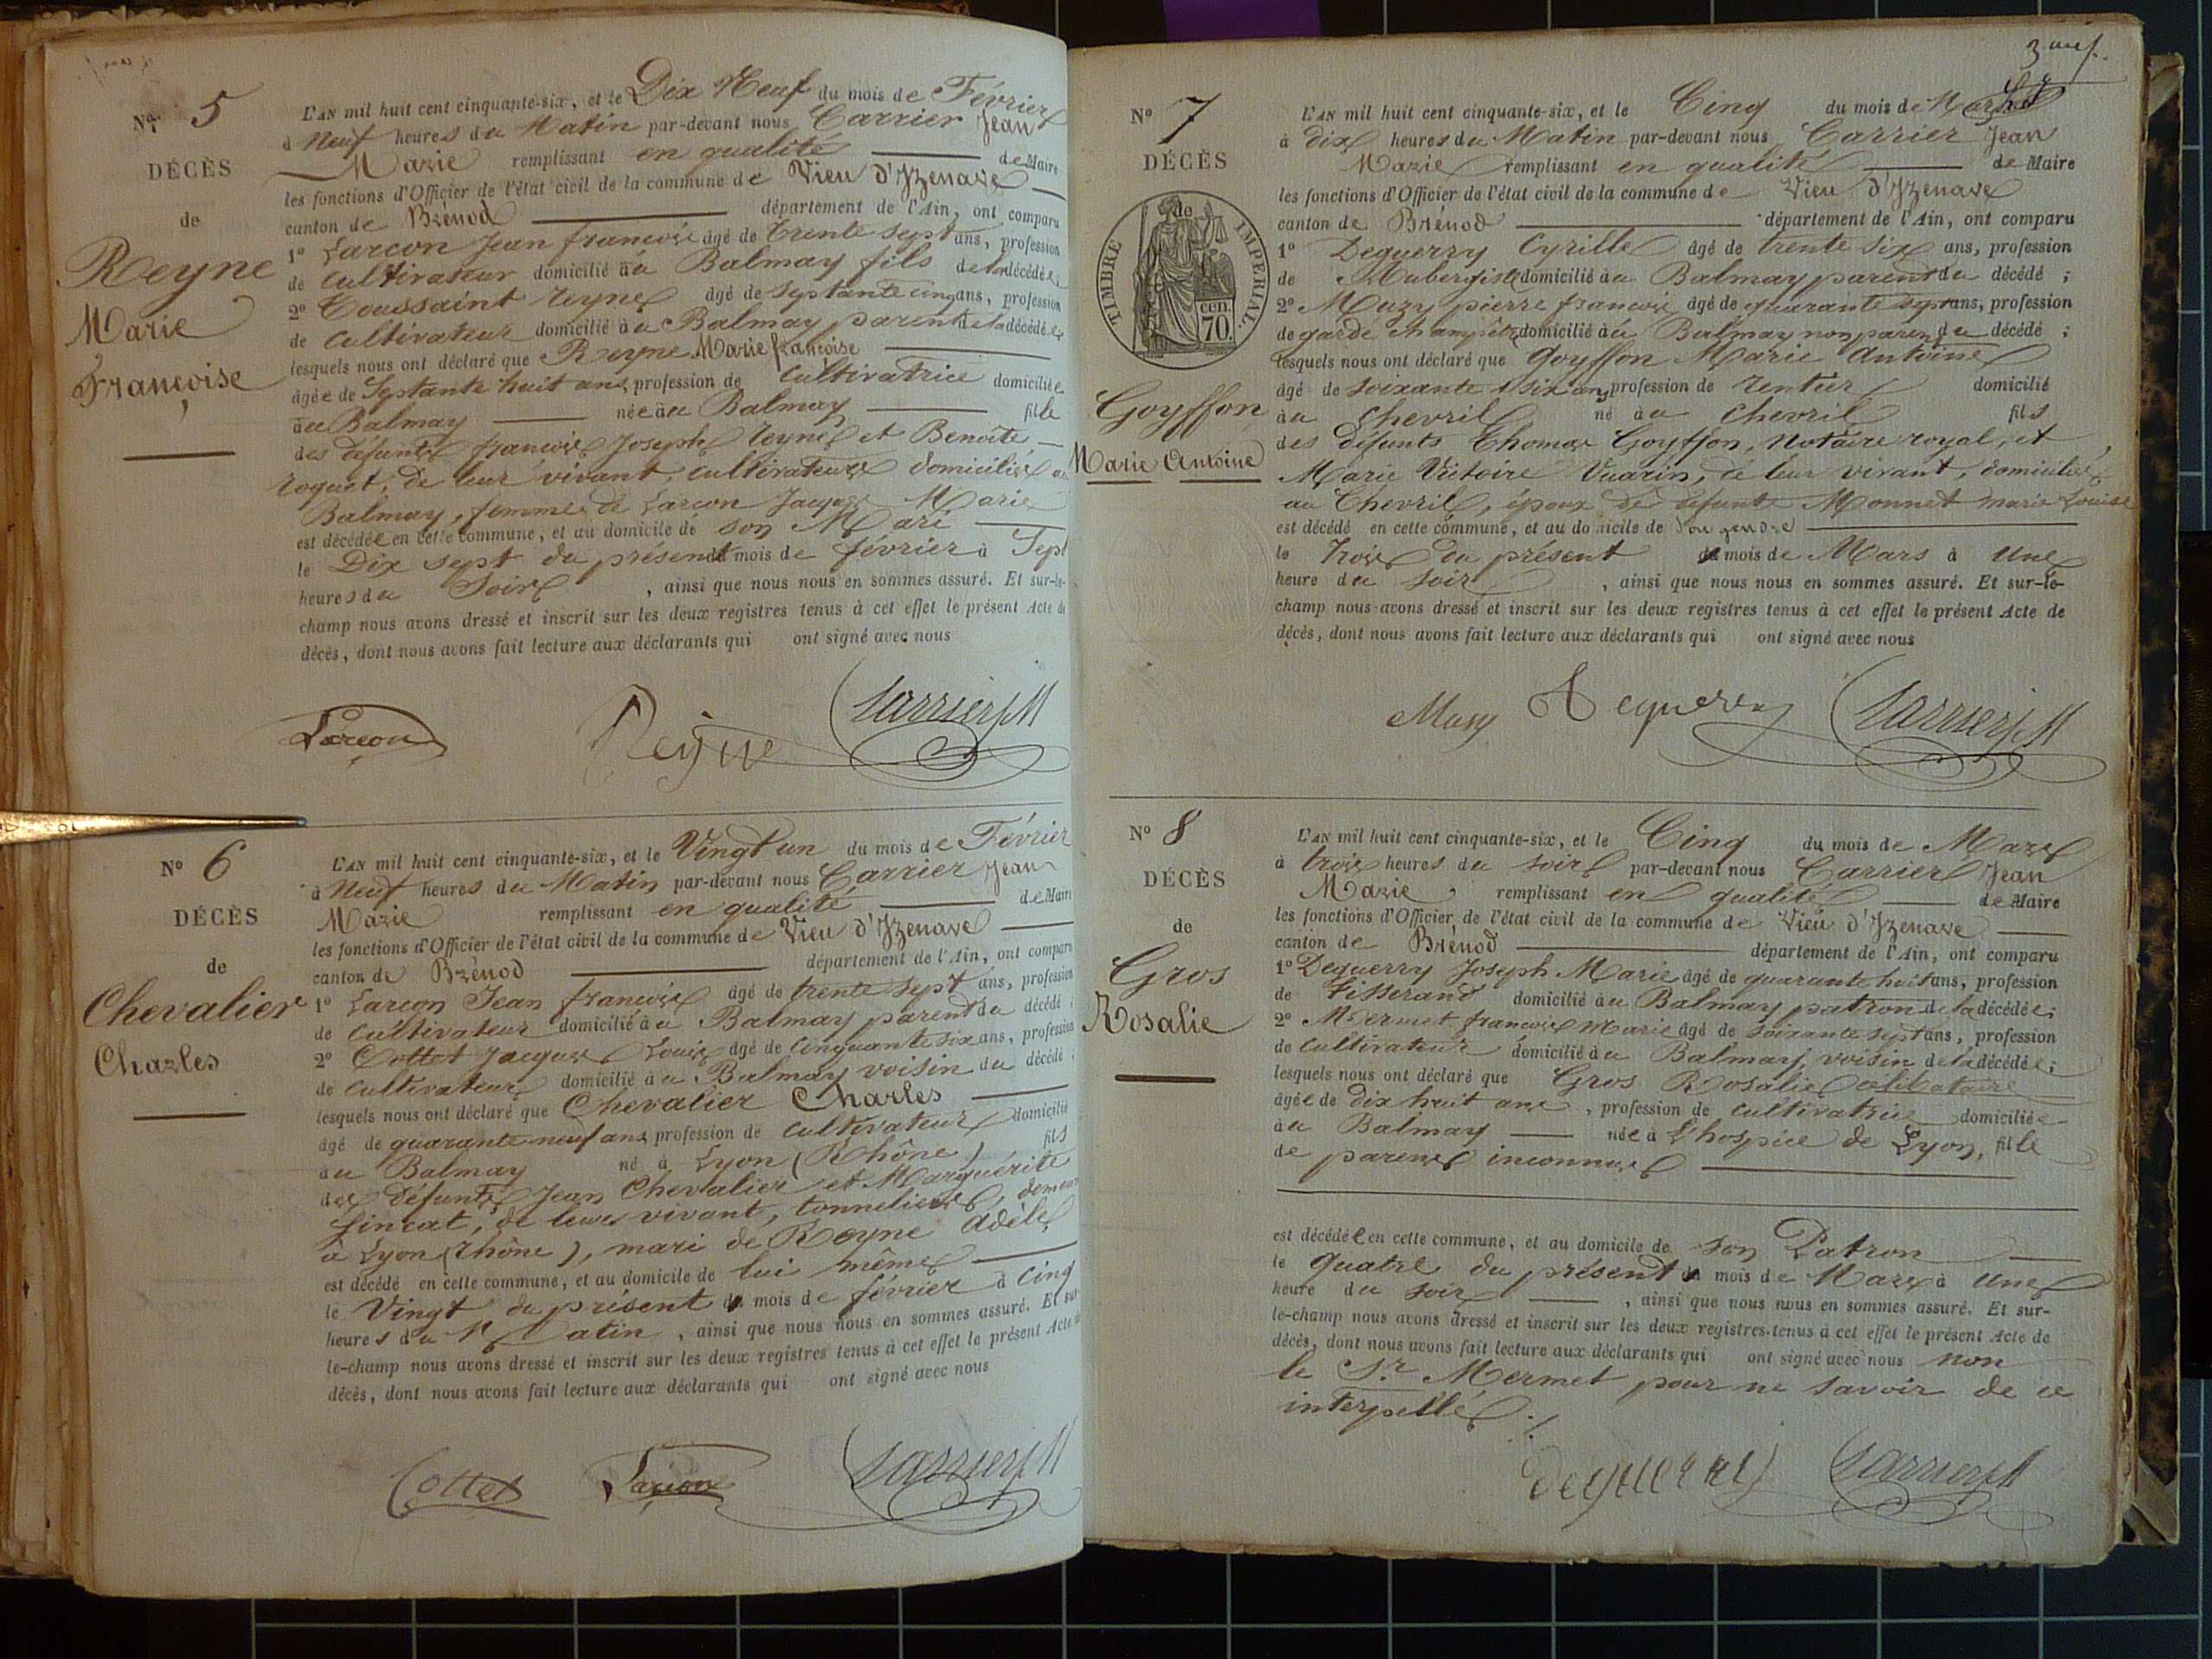 Nº 5
DÉCÈS
de
Reyne
Marie
Françoise
L'AN mil huit cent cinquante-six, et le Dix Neuf du mois de Février
à Neuf heures du Matin par-devant nous Carrier Jean
Marie remplissant en qualité de Maire
les fonctions d'Officier de l'état civil de la commune de Vieu d'Izenave
canton de Brénod département de l'Ain, ont comparu
1º Larcon Jean françois âgé de trente sept ans, profession
de cultivateur domicilié au Balmay fils de la décédée
2º Toussaint reyne âgé de septante cinq ans, profession
de cultivateur domicilié au Balmay parent de la décédée
lesquels nous ont déclaré que Reyne Marie françoise
âgée de Septante huit ans, profession de cultivatrice domiciliée
au Balmay née au Balmay fille
des défunts françois Joseph reyne et Benoîte
roquet, de leur vivant, cultivateurs domiciliés au
Balmay, femme de Larcon Jacques Marie
est décédée en cette commune, et au domicile de son Mari
le Dix sept du présent mois de février à Sept
heures du Soir, ainsi que nous nous en sommes assuré. Et sur-le-
champ nous avons dressé et inscrit sur les deux registres tenus à cet effet le présent Acte de
décès, dont nous avons fait lecture aux déclarants qui ont signé avec nous
Larcon Reyne Carrier J M
Nº 6
DÉCÈS
de
Chevalier
Charles
L'AN mil huit cent cinquante-six, et le Vingt un du mois de Février
à Neuf heures du Matin par-devant nous Carrier Jean
Marie remplissant en qualité de Maire
les fonctions d'Officier de l'état civil de la commune de Vieu d'Izenave
canton de Brénod département de l'Ain, ont comparu
1º Larcon Jean françois âgé de trente sept ans, profession
de cultivateur domicilié au Balmay parent du décédé ;
2º Cottet Jacques Louis âgé de cinquante six ans, profession
de cultivateur domicilié au Balmay voisin du décédé ;
lesquels nous ont déclaré que Chevalier Charles
âgé de quarante neuf ans profession de cultivateur domicilié
au Balmay né à Lyon (Rhône) fils
des défunts Jean Chevalier et Marguérite
fincat, de leurs vivant, tonneliers,
à Lyon (rhône), mari de Reyne Adèle
est décédé en cette commune, et au domicile de lui même
le Vingt du présent mois de février à cinq
heures du Matin, ainsi que nous nous en sommes assuré. Et sur-
le-champ nous avons dressé et inscrit sur les deux registres tenus à cet effet le présent Acte de
décès, dont nous avons fait lecture aux déclarants qui ont signé avec nous
Cottet Larcon Carrier J M
Nº 7
DÉCÈS
de
TIMBRE IMPERIAL.
cen.
70.
Goyffon
Marie Antoine
L'AN mil huit cent cinquante-six, et le Cinq du mois de Mars
à dix heures du Matin par-devant nous Carrier Jean
Marie remplissant en qualité de Maire
les fonctions d'Officier de l'état civil de la commune de Vieu d'Izenave
canton de Brénod département de l'Ain, ont comparu
1º Deguerry Cyrille âgé de trente six ans, profession
de Aubergiste domicilié au Balmay parent du décédé ;
2º Muzy pierre françois âgé de quarante sept ans, profession
de garde champêtre domicilié au Balmay non parent du décédé ;
lesquels nous ont déclaré que Goyffon Marie Antoine
âgé de soixante six ans, profession de rentier domicilié
au chevril né au chevril fils
des défunts Thomas Goyffon, Notaire royal, et
Marie Victoire Vuarin, de leur vivant, domiciliés
au Chevril, époux de défunte Monnet Marie Louise
est décédé en cette commune, et au domicile de son gendre
le trois du présent mois de Mars à Une
heure du soir, ainsi que nous nous en sommes assuré. Et sur-le-
champ nous avons dressé et inscrit sur les deux registres tenus à cet effet le présent Acte de
décès, dont nous avons fait lecture aux déclarants qui ont signé avec nous
Muzy Deguerry Carrier J M
Nº 8
DÉCÈS
de
Gros
Rosalie
L'AN mil huit cent cinquante-six, et le Cinq du mois de Mars
à trois heures du soir par-devant nous Carrier Jean
Marie, remplissant en qualité de Maire
les fonctions d'Officier de l'état civil de la commune de Vieu d'Izenave
canton de Brénod département de l'Ain, ont comparu
1º Deguerry Joseph Marie âgé de quarante huit ans, profession
de tisserand domicilié au Balmay patron de la décédée ;
2º Mermet françois Marie âgé de soixante sept ans, profession
de cultivateur domicilié au Balmay, voisin de la décédée ;
lesquels nous ont déclaré que Gros Rosalie célibataire
âgée de dix huit ans, profession de cultivatrice domiciliée
au Balmay née à L'hospice de Lyon, fille
de parens inconnus
est décédée en cette commune, et au domicile de son Patron
le quatre du présent mois de Mars à Une
heure du soir, ainsi que nous nous en sommes assuré. Et sur-
le-champ nous avons dressé et inscrit sur les deux registres tenus à cet effet le présent Acte de
décès, dont nous avons fait lecture aux déclarants qui ont signé avec nous non
le Sr Mermet pour ne savoir de ce
interpellé ./.
deguerry Carrier J M